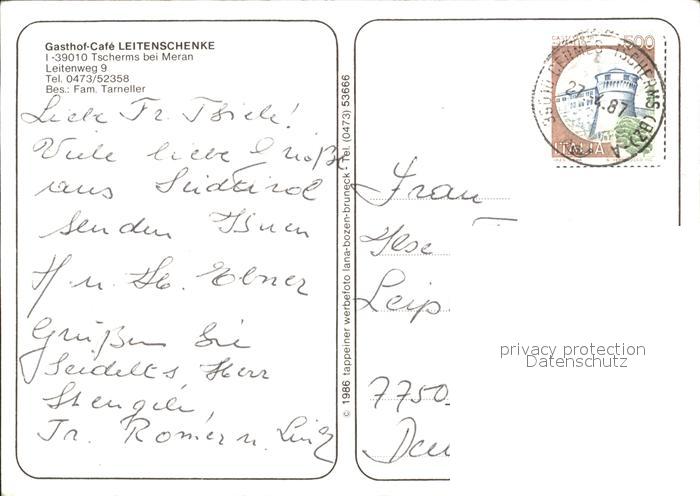 Gasthof-Café LEITENSCHENKE
I-39010 Tscherms bei Meran
Leitenweg 9
Tel. 0473/52358
Bes.: Fam. Tarneller
Liebe Fr.
Viele liebe Grüße
aus Südtirol
senden Ihnen
H u. Ebner
Grüßen Sie
Seidelts Herr
Stengele,
Fr. Romer u.
© 1986 tappeiner werbefoto lana-bozen-bruneck Tel. (0473) 53666
500
ITALIA
TSCHERMS (BZ)
87
Frau
Ilse
Leip
7750
Deu
privacy protection
Datenschutz